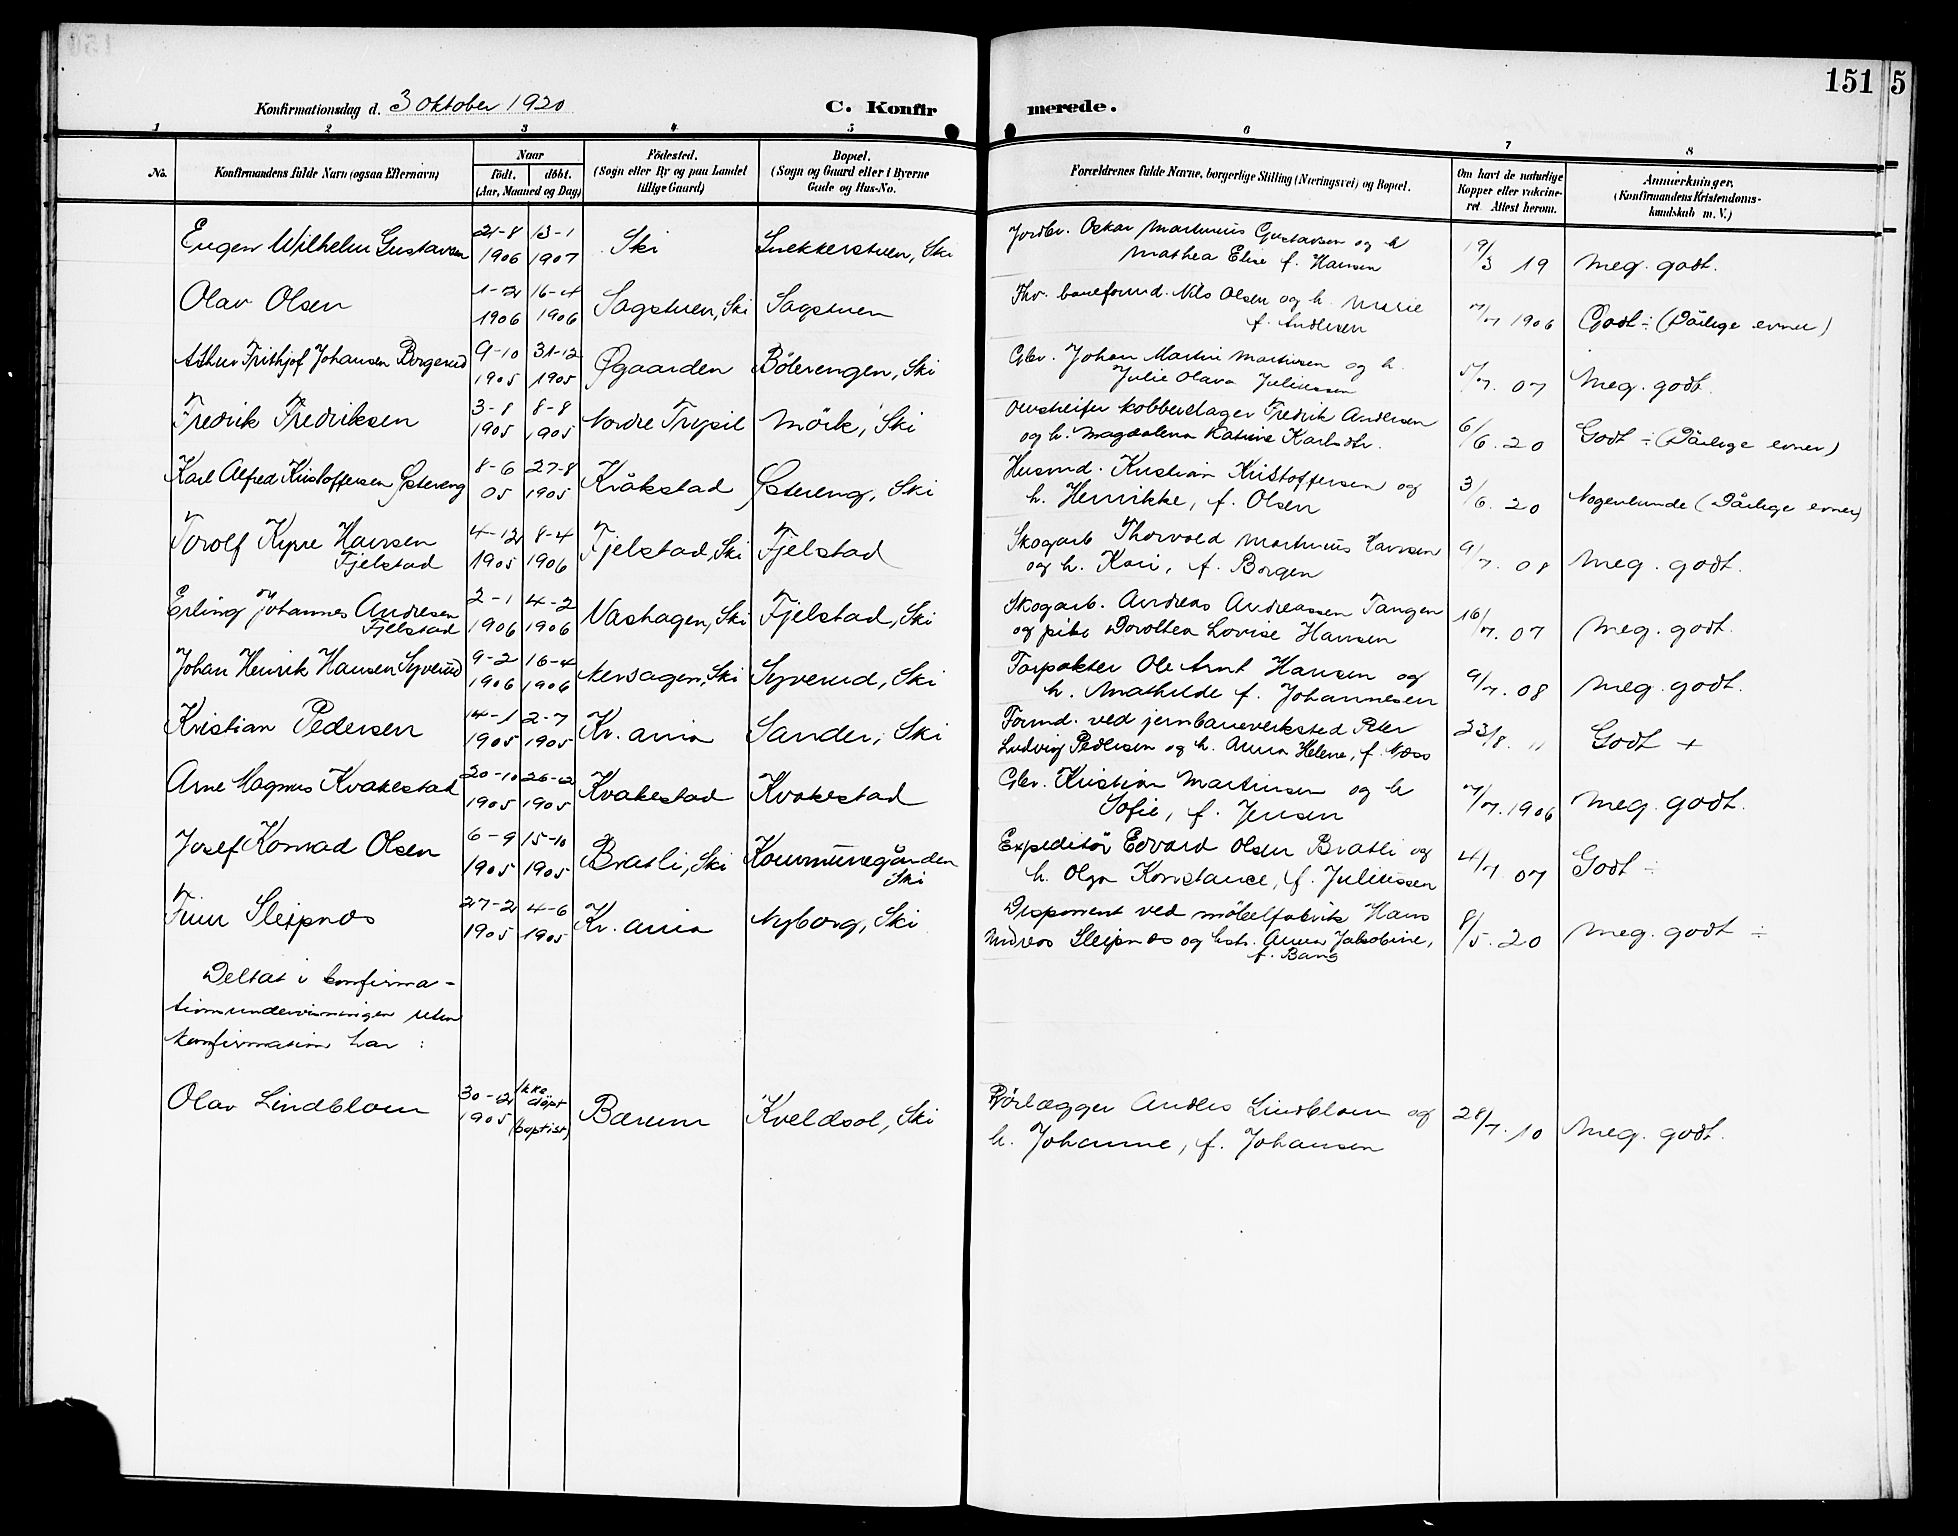 151
5
Konfirmationsdag d. 3 Oktober 1920
C. Konfir
merede.
1 2 3 4 5 6 7 8
No.
Konfirmandens fulde Navn (ogsaa Efternavn)
Naar
födt. döbt.
(Aar, Maaned og Dag)
Födested.
(Sogn eller By og paa Landet
tillige Gaard)
Bopæl.
(Sogn og Gaard eller i Byerne
Gade og Hus-No.
Forældrenes fulde Navne, borgerlige Stilling (Næringsvei) og Bopæl.
Om havt de naturlige
Kopper eller vakcine-
ret. Attest herom.
Anmærkninger.
(Konfirmandens Kristendoms-
kundskab m. V.)
Eugen Wilhelm Gustavsen 21-8 1906 13-1 1907 Ski Snekkerstuen, Ski
Oskar Martinius Gustavsen og h
Mathea Elise f. Hansen
9/3 19 Meg. godt.
Olav Olsen 1-2 1906 16-4 1906 Sagstuen, Ski Sagstuen
Nils Olsen og h. Marie
f. Andersen
7/7 1906 Godt ÷ (Dårlige evner)
Frithjof Johansen Borgerud 9-10 1905 31-12 1905 Øgaarden Bölerengen, Ski
Gbr. Johan Martin Martinsen og h.
Julie Olava Juliussen
5/7. 07 Meg. godt.
Fredrik Fredriksen 3-8 1905 8-8 1905 Nordre Trysil Mörk, Ski
kobberslager Fredrik Andersen
og h. Magdalena Katrine Karlsdtr.
6/6. 20 Godt ÷ (Dårlige evner)
Karl Alfred Kristoffersen Østereng 8-6 05 27-8 1905 Kråkstad Østereng, Ski
Husmd. Kristian Kristoffersen og
h. Henrikke, f. Olsen
3/6. 20 Nogenlunde (Dårlige evner)
Torolf Hansen
Fjelstad
4-12 1905 8-4 1906 Fjelstad, Ski Fjelstad
Skogarb Thorvald Martinius Hansen
og h. Kari, f. Borgen
9/7. 08 Meg. godt.
Erling Johannes Andresen
Fjelstad
2-1 1906 4-2 1906 Vashagen, Ski Fjelstad, Ski
Skogarb. Andreas Andreassen Tangen
og pike Dorothea Lovise Hansen
16/7. 07 Meg. godt.
Johan Henrik Hansen Syverud 9-2 1906 16-4 1906 Nersagen, Ski Syverud, Ski
Forpakter Ole Arnt Hansen og
h. Mathilde f. Johannesen
9/7. 08 Meg. godt.
Kristian Pedersen 14-1 1905 2-7 1905 Kr.ania Sander, Ski
Formd. ved jernbaneverksted Peter
Ludvig Pedersen og h. Anna Helene, f. Næss
23/8. 11 Godt +
Arne Magnus Kvakestad 20-10 1905 26-12 1905 Kvakestad Kvakestad
Gbr. Kristian Martinsen og h
Sofie, f. Jensen
7/7. 1906 Meg. godt.
Josef Konrad Olsen 6-9 1905 15-10 1905 Bratli, Ski Kommunegården
Ski
Expeditör Edvard Olsen Bratli og
h. Olga Konstance, f. Juliussen
4/7. 07 Godt ÷
Finn Sleipnæs 27-2 1905 4-6 1905 Kr.ania Nyborg, Ski
Disponent ved möbelfabrik Hans
Andreas Sleipnæs og hstr. Anna Jakobine,
f. Bang
8/5. 20 Meg. godt ÷
Deltat i konfirma-
tionsundervisningen uten
konfirmation har :
Olav Lindblom 30-12 1905 Ikke
döpt
(baptist)
Bærum Kveldsol, Ski
Rörlægger Anders Lindblom og
h. Johanne, f. Johansen
28/7. 10 Meg. godt.